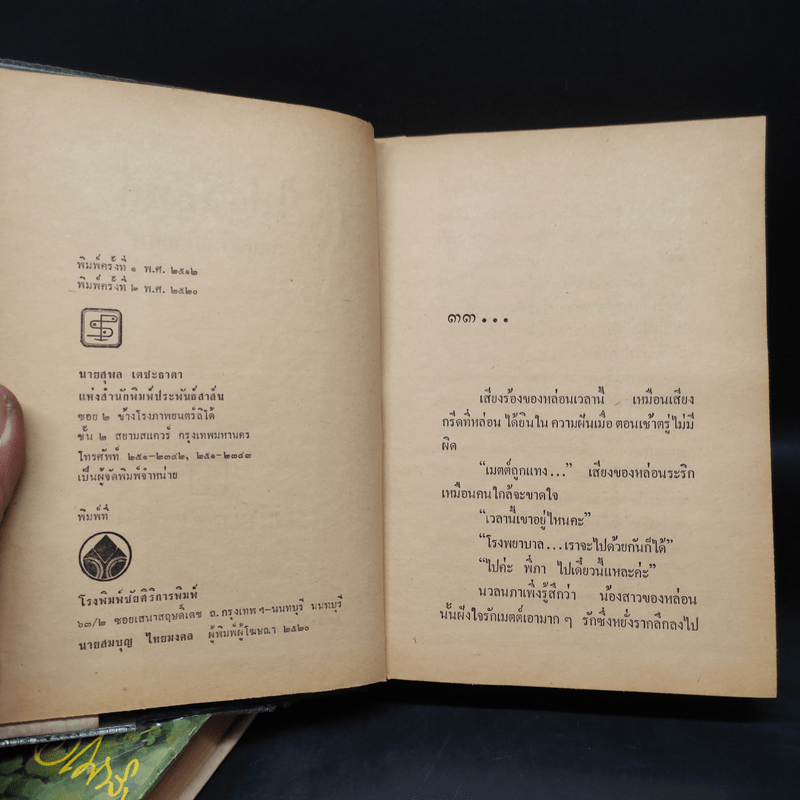 พิมพ์ครั้งที่ ๑ พ.ศ. ๒๕๑๒
พิมพ์ครั้งที่ ๒ พ.ศ. ๒๕๒๐
นายสุพล เตชะธาดา
แห่งสำนักพิมพ์ประพันธ์สาส์น
ซอย ๒ ข้างโรงภาพยนตร์ลิโด้
ชั้น ๒ สยามสแควร์ กรุงเทพมหานคร
โทรศัพท์ ๒๕๑-๒๓๔๒, ๒๕๑-๒๓๔๓
เป็นผู้จัดพิมพ์จำหน่าย
พิมพ์ที่
โรงพิมพ์ชัยศิริการพิมพ์
๖๓/๒ ซอยเสนาสฤษดิ์เดช ถ.กรุงเทพฯ-นนทบุรี นนทบุรี
นายสมบุญ ไทยมงคล ผู้พิมพ์ผู้โฆษณา ๒๕๒๐
๓๓...
เสียงร้องของหล่อนเวลานี้ เหมือนเสียง
กรีดที่หล่อน ได้ยินใน ความฝันเมื่อ ตอนเช้าตรู่ไม่มี
ผิด
“เมตต์ถูกแทง...” เสียงของหล่อนระริก
เหมือนคนใกล้จะขาดใจ
“เวลานี้เขาอยู่ไหนคะ”
“โรงพยาบาล...เราจะไปด้วยกันก็ได้”
“ไปค่ะ พี่ภา ไปเดี๋ยวนี้แหละค่ะ”
นวลนภาเพิ่งรู้สึกว่า น้องสาวของหล่อน
นั้นฝังใจรักเมตต์เอามาก ๆ รักซึ่งหยั่งรากลึกลงไป